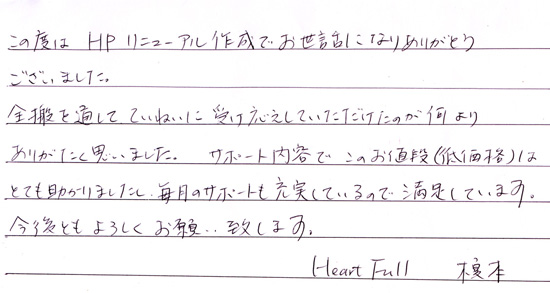 この度は HPリニューアル作成でお世話になりありがとう
ございました。
全搬を通してていねいに受け応えしていただけたのが何より
ありがたく思いました。 サポート内容でこのお値段(低価格)は
とても助かりましたし、毎月のサポートも充実しているので満足しています。
今後ともよろしくお願い致します。
Heart Full 榎本